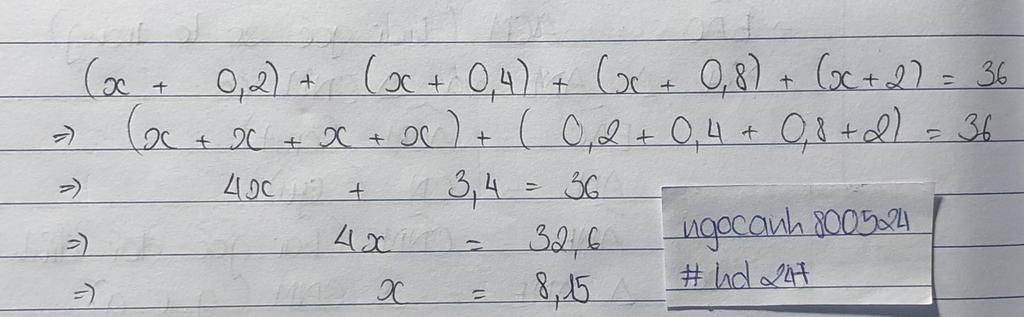 (x + 0,2) + (x + 0,4) + (x + 0,8) + (x + 2) = 36
⇒ (x + x + x + x) + (0,2 + 0,4 + 0,8 + 2) = 36
⇒ 4x + 3,4 = 36
⇒ 4x = 32,6
⇒ x = 8,15
ngocanh800524
#hd247